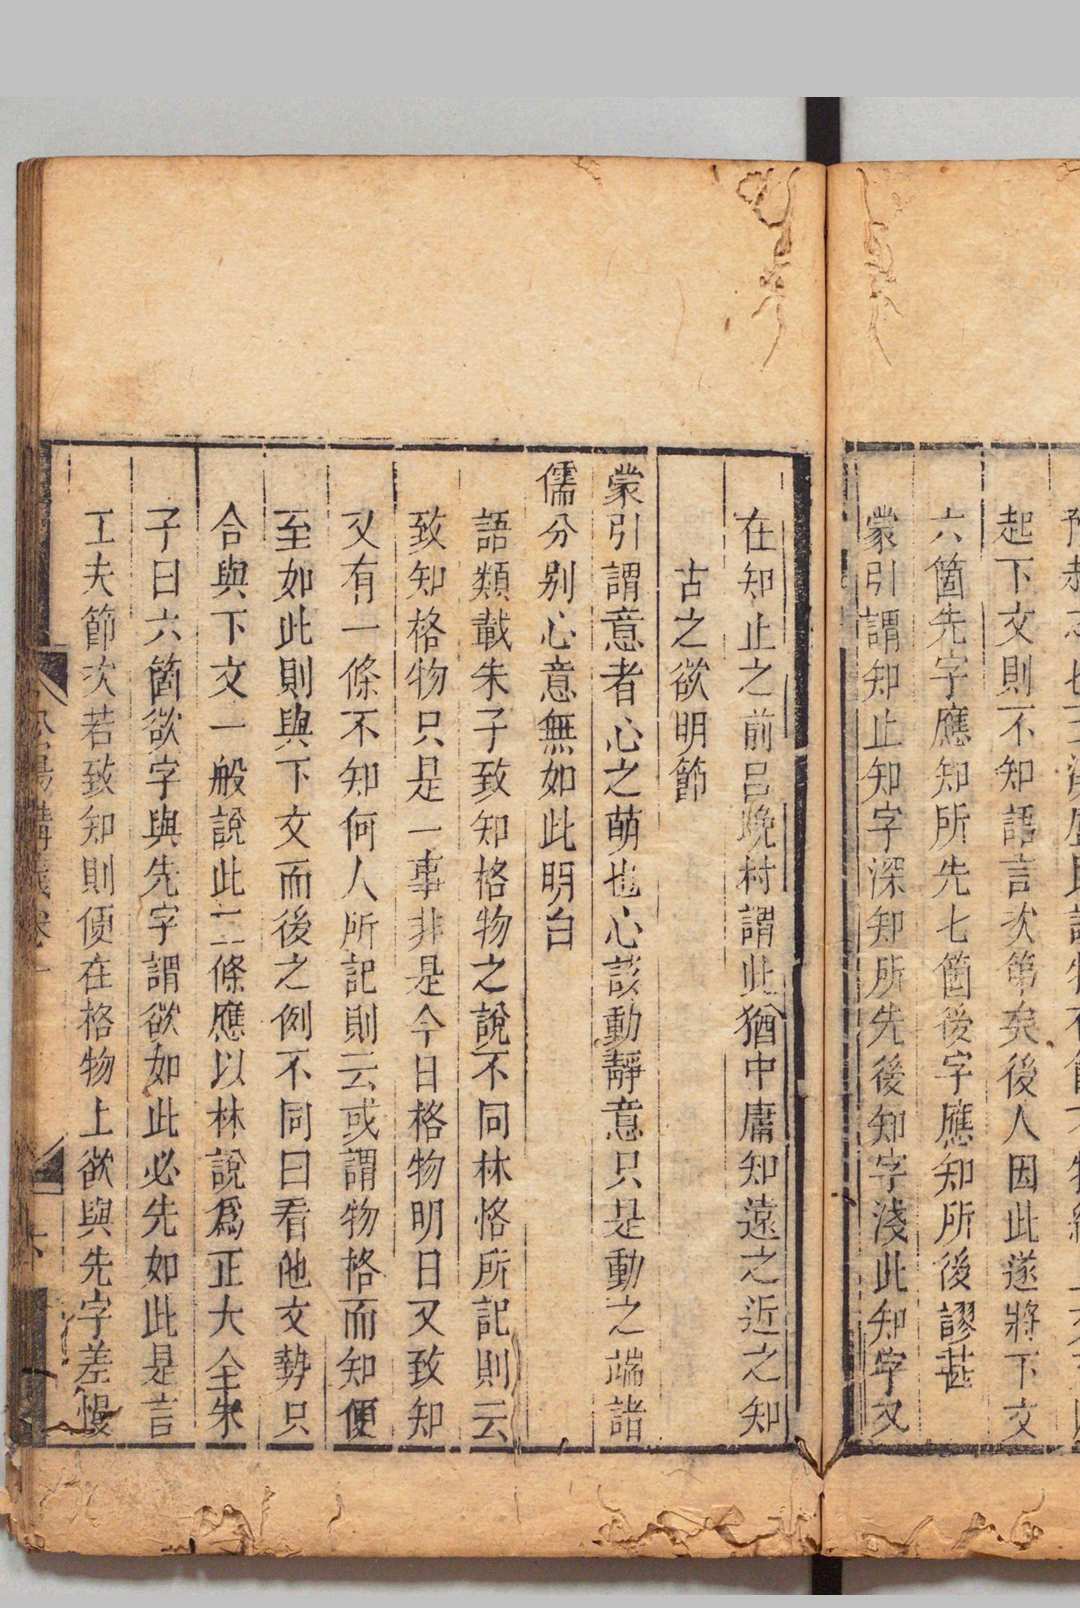 起下文則不知語言次第矣後人因此遂將下文
六箇先字應知所先七箇後字應知所後謬甚
蒙引謂知止知字深知所先後知字淺此知字又
在知止之前呂晚村謂此猶中庸知遠之近之知
古之欲明節
蒙引謂意者心之萌也心該動靜意只是動之端諸
儒分别心意無如此明白
語類載朱子致知格物之說不同林恪所記則云
致知格物只是一事非是今日格物明日又致知
又有一條不知何人所記則云或謂物格而知便
至如此則與下文而後之例不同曰看他文勢只
合與下文一般說此二條應以林說爲正大全朱
子曰六箇欲字與先字謂欲如此必先如此是言
工夫節次若致知則便在格物上欲與先字差慢
松陽講義卷一